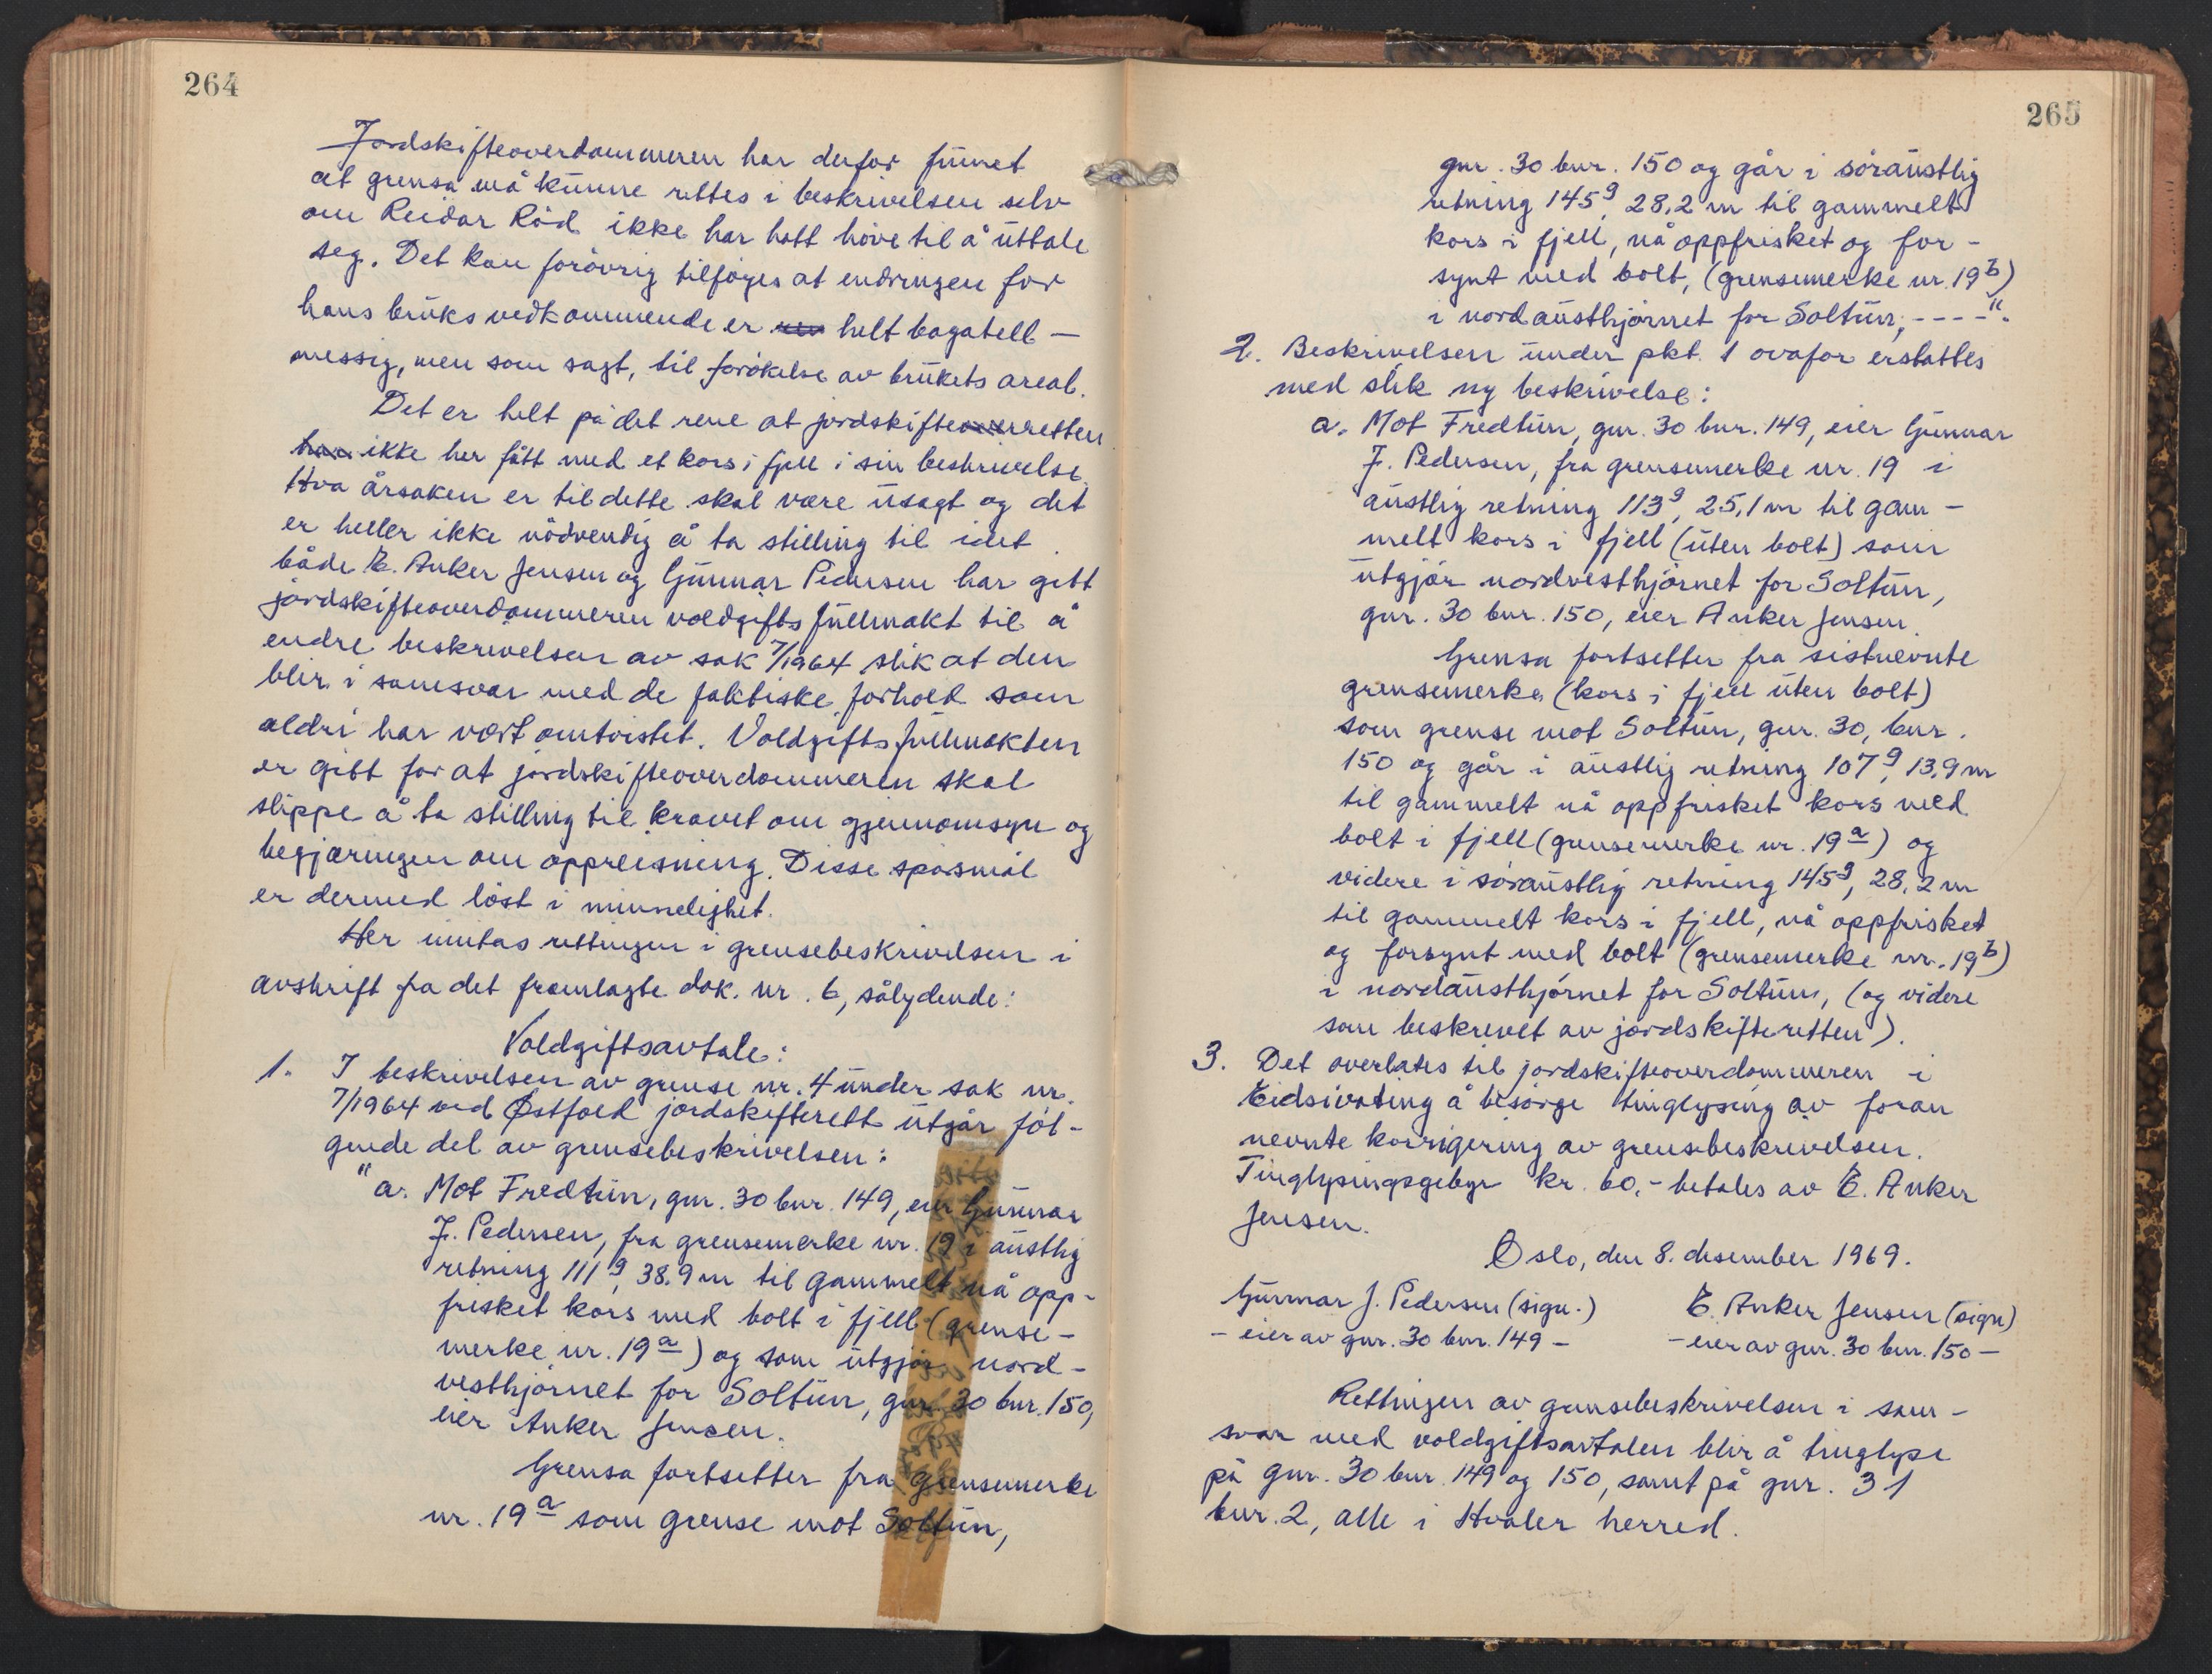 264
Jordskifteoverdommeren har derfor funnet
at grensa må kunne rettes i beskrivelsen selv
om Reidar Röd ikke har hatt höve til å uttale
seg. Det kan forövrig tilföyes at endringen for
hans bruks vedkommende er ren helt bagatell-
messig, men som sagt, til forökelse av brukets areal.
Det er helt på det rene at jordskifteoverretten
han ikke her fått med et kors i fjell i sin beskrivelse.
Hva årsaken er til dette skal være usagt og det
er heller ikke nödvendig å ta stilling til idet
både E. Anker Jensen og Gunnar Pedersen har gitt
jordskifteoverdommeren voldgiftsfullmakt til å
endre beskrivelsen av sak 7/1964 slik at den
blir i samsvar med de faktiske forhold som
aldri har vært omtvistet. Voldgiftsfullmakten
er gitt for at jordskifteoverdommeren skal
slippe å ta stilling til kravet om gjennomsyn og
begjæringen om oppreisning. Disse spörsmål
er dermed löst i minnelighet.
Her inntas rettingen i grensebeskrivelsen i
avskrift fra det framlagte dok. nr. 6, sålydende:
Voldgiftsavtale:
1. I beskrivelsen av grense nr. 4 under sak nr.
7/1964 ved Østfold jordskifterett utgår föl-
gende del av grensebeskrivelsen:
"a. Mot Fredtun, gnr. 30 bnr. 149, eier Gunnar
J. Pedersen, fra grensemerke nr. 19 i austlig
retning 111g, 38,9 m til gammelt nå opp-
frisket kors med bolt i fjell (grense-
merke nr. 19a) og som utgjör nord-
vesthjörnet for Soltun, gnr. 30 bnr. 150,
eier Anker Jensen.
Grensa fortsetter fra grensemerke
nr. 19a som grense mot Soltun,
265
gnr. 30 bnr. 150 og går i söraustlig
retning 145g, 28,2 m til gammelt
kors i fjell, nå oppfrisket og for-
synt med bolt, (grensemerke nr. 19b)
i nordausthjörnet for Soltun, ----".
2. Beskrivelsen under pkt. 1 ovafor erstattes
med slik ny beskrivelse:
a. Mot Fredtun, gnr. 30 bnr. 149, eier Gunnar
J. Pedersen, fra grensemerke nr. 19 i
austlig retning 113g, 25,1 m til gam-
melt kors i fjell (uten bolt) som
utgjör nordvesthjörnet for Soltun,
gnr. 30 bnr. 150, eier Anker Jensen.
Grensa fortsetter fra sistnevnte
grensemerke (kors i fjell uten bolt)
som grense mot Soltun, gnr. 30, bnr.
150 og går i austlig retning 107g, 13,9 m
til gammelt nå oppfrisket kors med
bolt i fjell (grensemerke nr. 19a) og
videre i söraustlig retning 145g, 28,2 m
til gammelt kors i fjell, nå oppfrisket
og forsynt med bolt (grensemerke nr. 19b)
i nordausthjörnet for Soltun, (og videre
som beskrevet av jordskifteretten).
3. Det overlates til jordskifteoverdommeren i
Eidsivating å besörge tinglysing av foran
nevnte korrigering av grensebeskrivelsen.
Tinglysingsgebyr kr. 60,- betales av E. Anker
Jensen.
Oslo, den 8. desember 1969.
Gunnar J. Pedersen (sign.) E. Anker Jensen (sign)
- eier av gnr. 30 bnr. 149 - - eier av gnr. 30 bnr. 150 -
Rettingen av grensebeskrivelsen i sam-
svar med voldgiftsavtalen blir å tinglyse
på gnr. 30 bnr. 149 og 150, samt på gnr. 31
bnr. 2, alle i Hvaler herred.